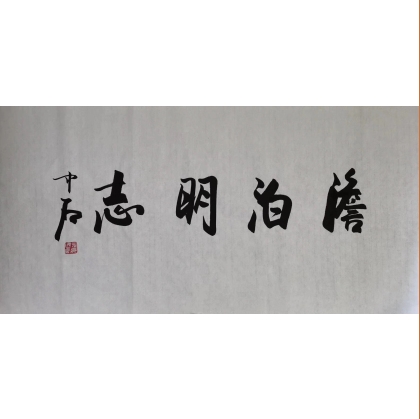 澹泊明志
中石